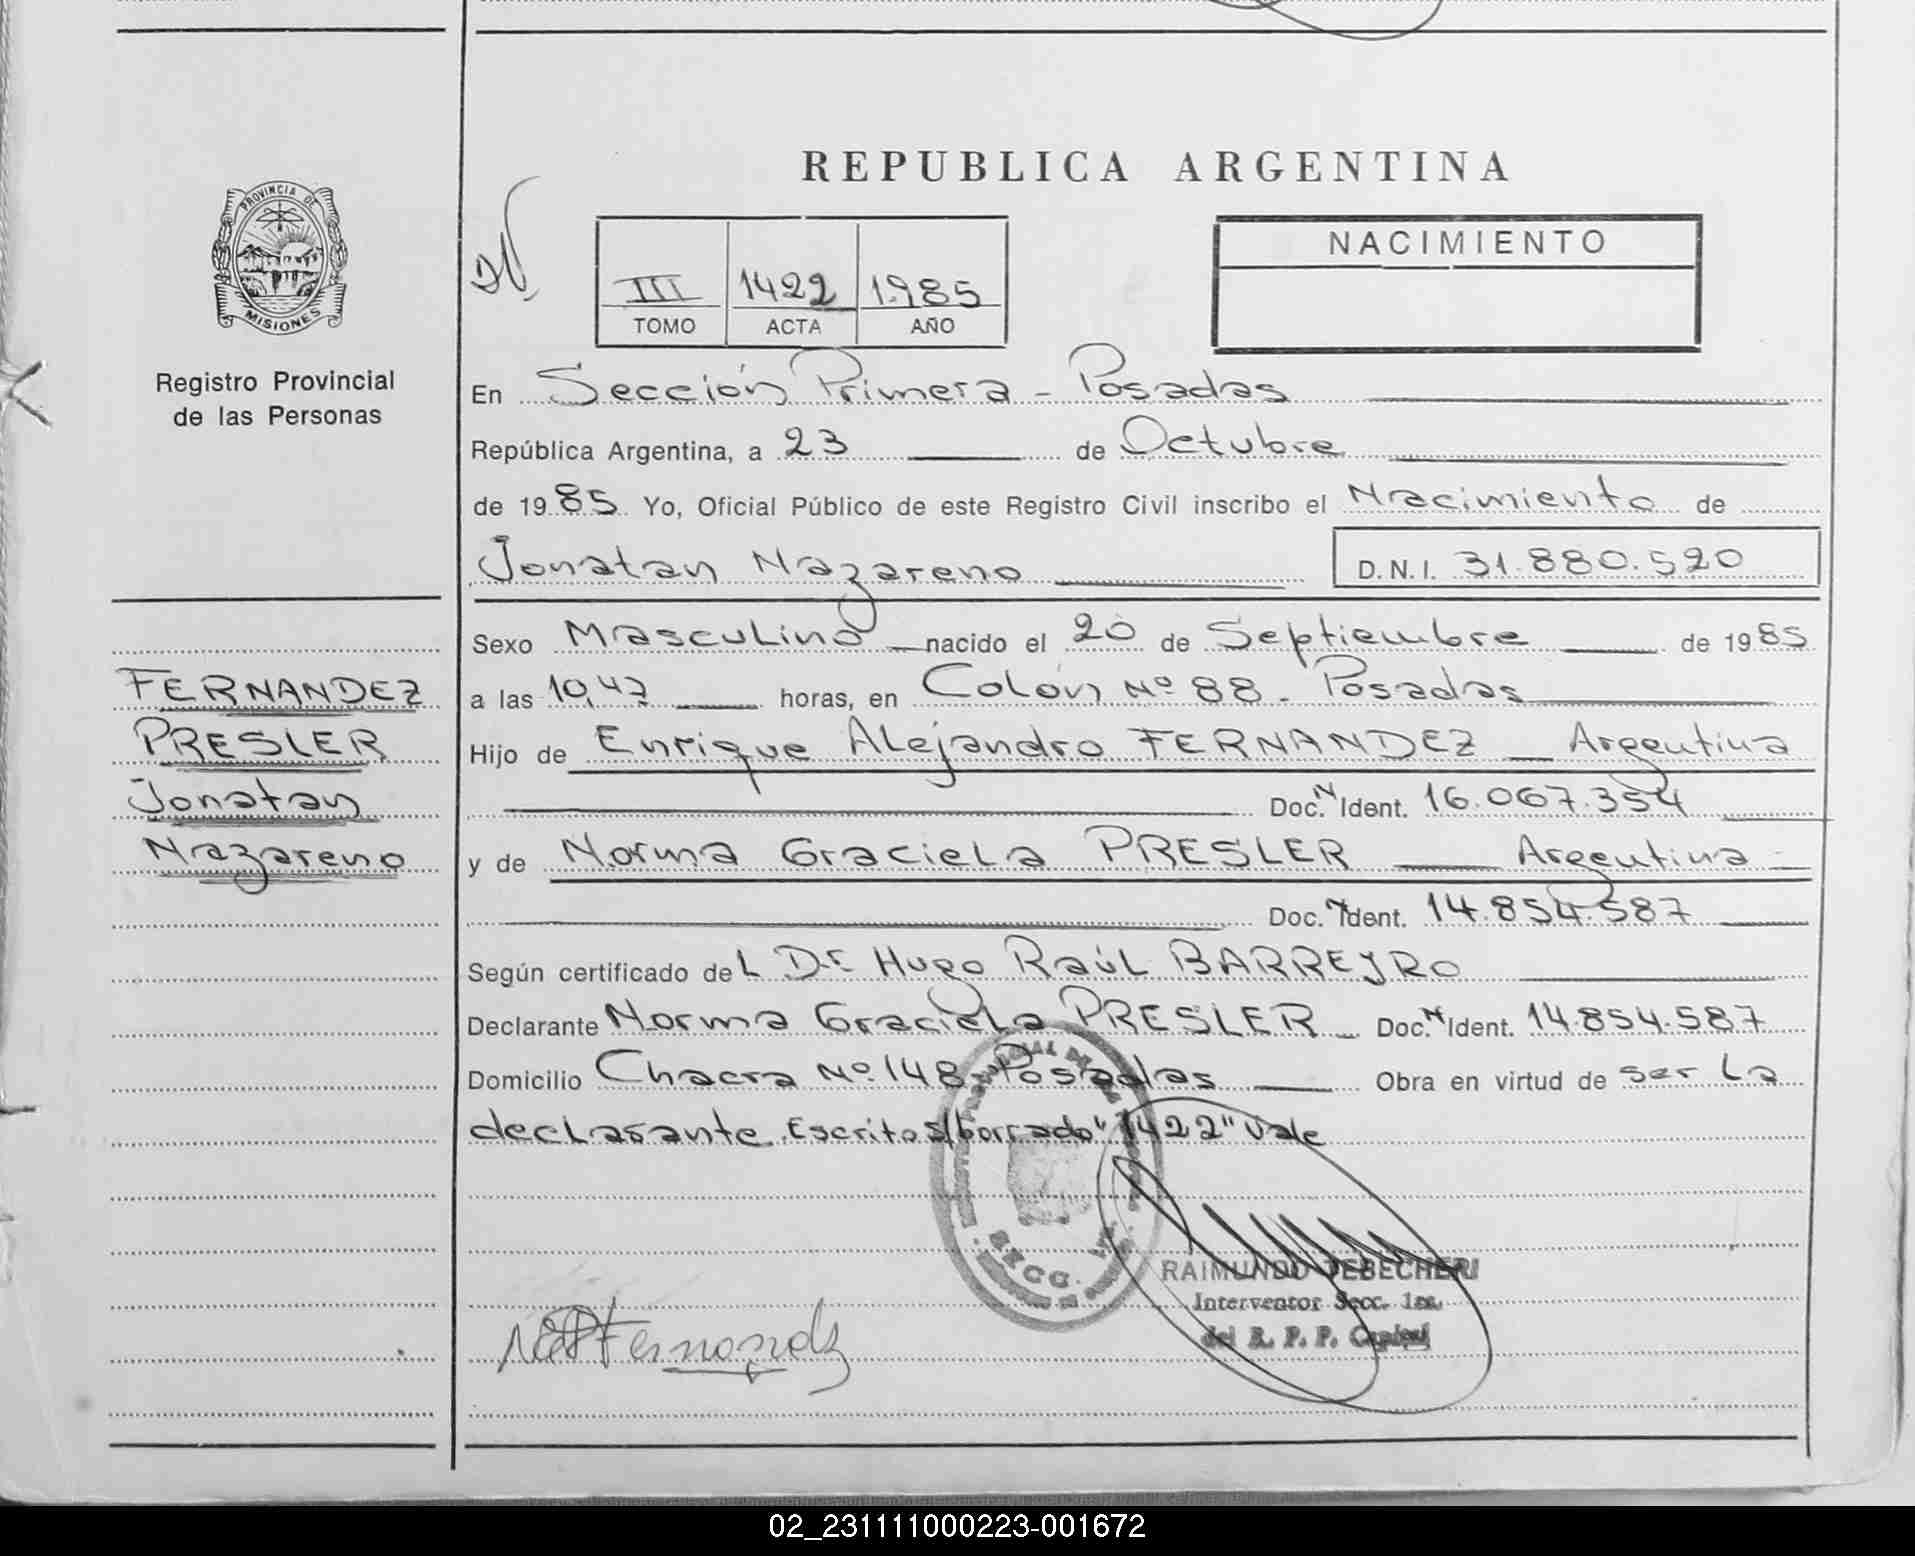 REPUBLICA ARGENTINA
PROVINCIA DE
MISIONES
Registro Provincial
de las Personas
III 1422 1.985
TOMO ACTA AÑO
NACIMIENTO
En Sección Primera - Posadas
República Argentina, a 23 de Octubre
de 1985 Yo, Oficial Público de este Registro Civil inscribo el Nacimiento de
Jonatan Nazareno D.N.I. 31.880.520
Sexo Masculino nacido el 20 de Septiembre de 1985
a las 10,47 horas, en Colón Nº 88 - Posadas
Hijo de Enrique Alejandro FERNANDEZ Argentina
Doc. N Ident. 16.067.354
y de Norma Graciela PRESLER Argentina
Doc. N Ident. 14.854.587
Según certificado del Dr. Hugo Raúl BARREYRO
Declarante Norma Graciela PRESLER Doc. N Ident. 14.854.587
Domicilio Chacra Nº 148 Posadas Obra en virtud de ser la
declarante. Escrito s/borrado "1422" Vale
FERNANDEZ
PRESLER
Jonatan
Nazareno
RAIMUNDO TEBECHERI
Interventor Secc. 1ra.
del R. P. P. Capital
Fernandz
02_231111000223-001672